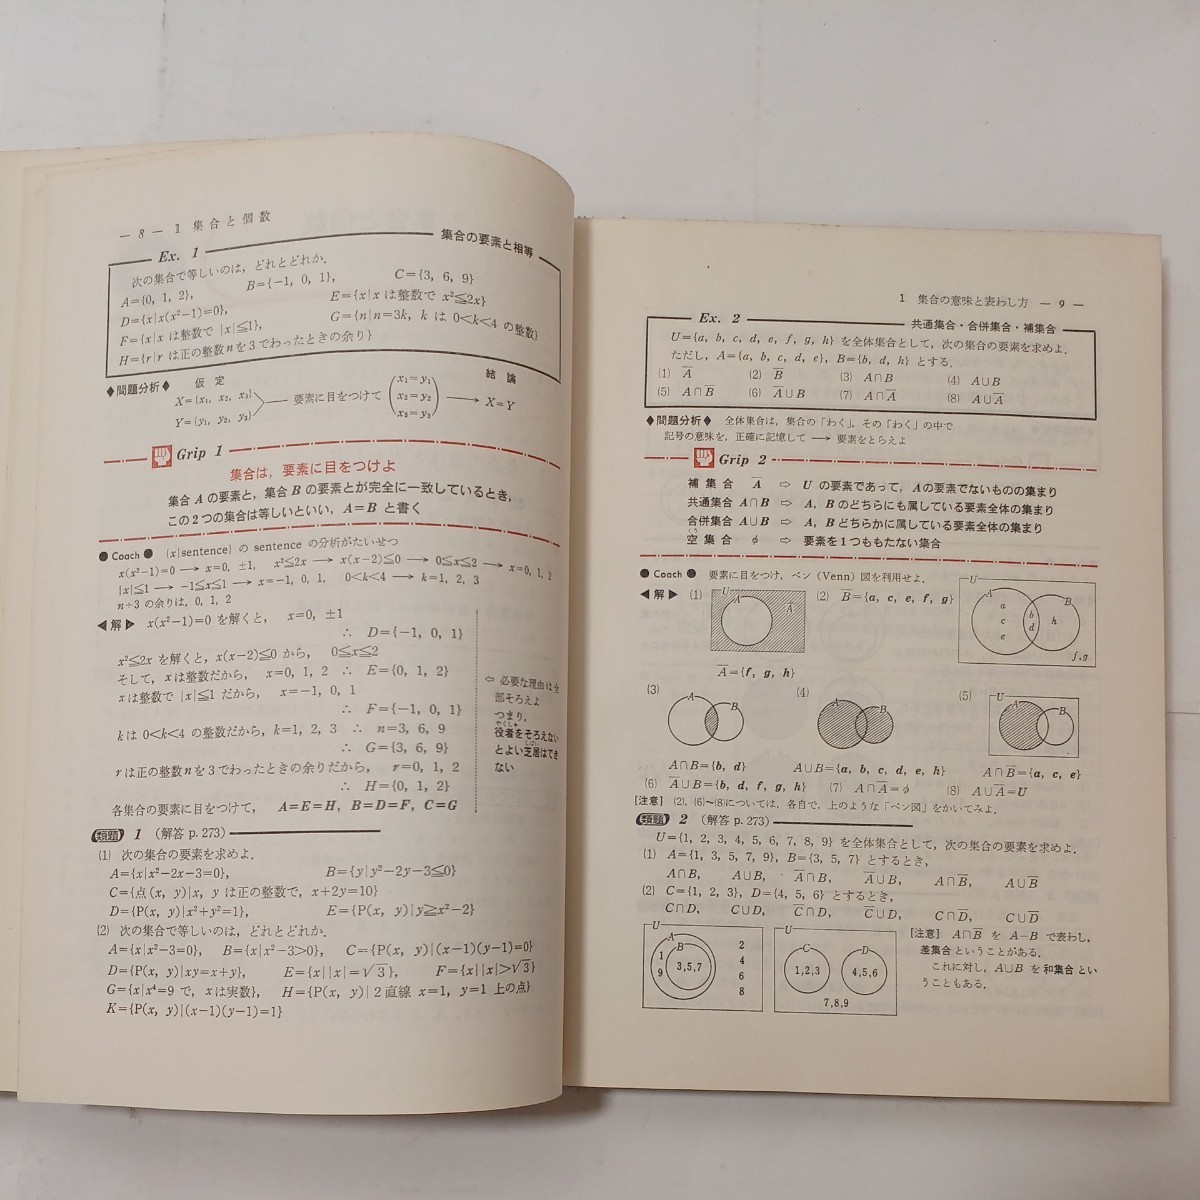 — 8 — 1 集合と個数
Ex. 1 集合の要素と相等
次の集合で等しいのは，どれとどれか．
A={0, 1, 2}, B={−1, 0, 1}, C={3, 6, 9}
D={x|x(x²−1)=0}, E={x|xは整数で x²≦2x}
F={x|xは整数で |x|≦1}, G={n|n=3k, kは 0<k<4 の整数}
H={r|rは正の整数nを3でわったときの余り}
◆問題分析◆ 仮定 結論
X={x₁, x₂, x₃}
Y={y₁, y₂, y₃}
要素に目をつけて
x₁=y₁
x₂=y₂
x₃=y₃
→ X=Y
Grip 1
集合は，要素に目をつけよ
集合Aの要素と，集合Bの要素とが完全に一致しているとき，
この2つの集合は等しいといい，A=B と書く
● Coach ● {x|sentence} の sentence の分析がたいせつ
x(x²−1)=0 → x=0, ±1, x²≦2x → x(x−2)≦0 → 0≦x≦2 → x=0, 1, 2
|x|≦1 → −1≦x≦1 → x=−1, 0, 1, 0<k<4 → k=1, 2, 3
n÷3 の余りは, 0, 1, 2
◀解▶ x(x²−1)=0 を解くと, x=0, ±1
∴ D={−1, 0, 1}
x²≦2x を解くと, x(x−2)≦0 から, 0≦x≦2
そして, xは整数だから, x=0, 1, 2 ∴ E={0, 1, 2}
xは整数で |x|≦1 だから, x=−1, 0, 1
∴ F={−1, 0, 1}
kは 0<k<4 の整数だから, k=1, 2, 3 ∴ n=3, 6, 9
∴ G={3, 6, 9}
rは正の整数nを3でわったときの余りだから, r=0, 1, 2
∴ H={0, 1, 2}
各集合の要素に目をつけて, A=E=H, B=D=F, C=G
⇦ 必要な理由は全
部そろえよ
つまり，
やくしゃ
役者をそろえない
しばい
とよい芝居はでき
ない
類題 1 （解答 p.273）
(1) 次の集合の要素を求めよ．
A={x|x²−2x−3=0}, B={y|y²−2y−3≦0}
C={点(x, y)|x, yは正の整数で, x+2y=10}
D={P(x, y)|x²+y²=1}, E={P(x, y)|y≧x²−2}
(2) 次の集合で等しいのは，どれとどれか．
A={x|x²−3=0}, B={x|x²−3>0}, C={P(x, y)|(x−1)(y−1)=0}
D={P(x, y)|xy=x+y}, E={x||x|=√3}, F={x||x|>√3}
G={x|x⁴=9 で, xは実数}, H={P(x, y)|2直線 x=1, y=1 上の点}
K={P(x, y)|(x−1)(y−1)=1}
1 集合の意味と表わし方 — 9 —
Ex. 2 共通集合・合併集合・補集合
U={a, b, c, d, e, f, g, h} を全体集合として，次の集合の要素を求めよ．
ただし，A={a, b, c, d, e}, B={b, d, h} とする．
(1) A̅ (2) B̅ (3) A∩B (4) A∪B
(5) A∩B̅ (6) A̅∪B (7) A∩A̅ (8) A∪A̅
◆問題分析◆ 全体集合は，集合の「わく」，その「わく」の中で
記号の意味を，正確に記憶して → 要素をとらえよ
Grip 2
補集合 A̅ ⇨ Uの要素であって，Aの要素でないものの集まり
共通集合 A∩B ⇨ A, Bのどちらにも属している要素全体の集まり
合併集合 A∪B ⇨ A, Bどちらかに属している要素全体の集まり
くう
空集合 φ ⇨ 要素を1つももたない集合
● Coach ● 要素に目をつけ，ベン (Venn) 図を利用せよ．
◀解▶ (1) U A A̅ (2) B̅={a, c, e, f, g}
U A B a c e b d h f, g
A̅={f, g, h}
(3) A B (4) A B (5) U A B
A∩B={b, d} A∪B={a, b, c, d, e, h} A∩B̅={a, c, e}
(6) A̅∪B={b, d, f, g, h} (7) A∩A̅=φ (8) A∪A̅=U
[注意] (2), (6)〜(8)については，各自で，上のような「ベン図」をかいてみよ．
類題 2 （解答 p.273）
U={1, 2, 3, 4, 5, 6, 7, 8, 9} を全体集合として，次の集合の要素を求めよ．
(1) A={1, 3, 5, 7, 9}, B={3, 5, 7} とするとき，
A∩B, A∪B, A̅∩B, A̅∪B, A∩B̅, A∪B̅
(2) C={1, 2, 3}, D={4, 5, 6} とするとき，
C∩D, C∪D, C̅∩D, C̅∪D, C∩D̅, C∪D̅
U A B 1 9 3,5,7 2 4 6 8
U C D 1,2,3 4,5,6 7,8,9
[注意] A∩B̅ を A−B で表わし，
差集合ということがある．
これに対し，A∪B を和集合とい
うこともある．